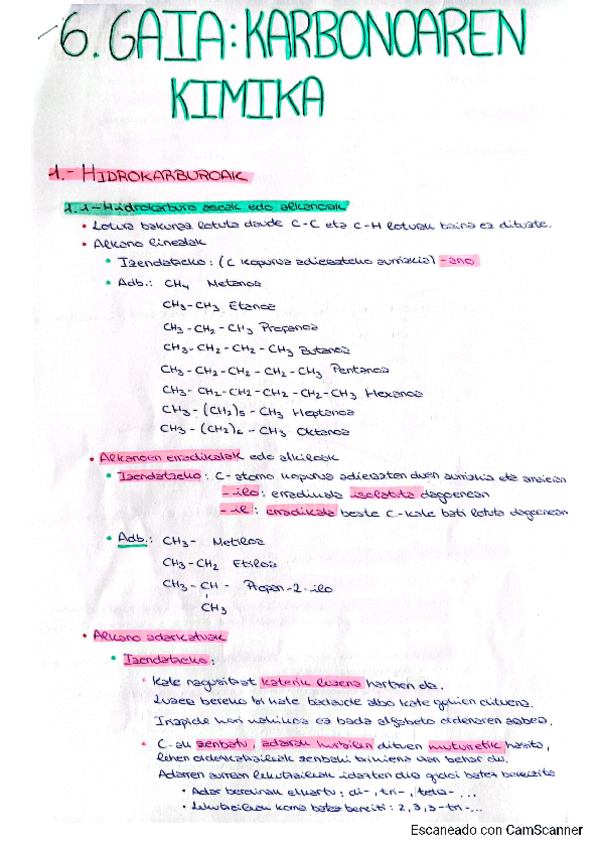 6. GAIA: KARBONOAREN
KIMIKA
1.- HIDROKARBUROAK
1.1- Hidrokarburo aseak edo alkanoak
• Lotura bakunez lotuta daude C-C eta C-H loturak baino ez dituzte.
• Alkano linealak
• Izendatzeko: (C kopurua adierazteko aurrizkia) -ano
• Adb.: CH4 Metanoa
CH3-CH3 Etanoa
CH3-CH2-CH3 Propanoa
CH3-CH2-CH2-CH3 Butanoa
CH3-CH2-CH2-CH2-CH3 Pentanoa
CH3-CH2-CH2-CH2-CH2-CH3 Hexanoa
CH3-(CH2)5-CH3 Heptanoa
CH3-(CH2)6-CH3 Oktanoa
• Alkanoen erradikalak edo alkiloak
• Izendatzeko: C-atomo kopurua adierazten duen aurrizkia eta amaieran
-ilo: erradikala isolatuta dagoenean
-il: erradikala beste C-kate bati lotuta dagoenean
• Adb.: CH3- Metiloa
CH3-CH2 Etiloa
CH3-CH- Propan-2-ilo
CH3
• Alkano adarkatuak
• Izendatzeko:
• Kate nagusitzat katerik luzeena hartzen da.
Luzera bereko bi kate badaude albo kate gehien dituena.
Irizpide hori nahikoa ez bada alfabeto ordenaren arabera.
• C-ak zenbatu, adarrak hurbilen dituen muturretik hasita,
lehen ordezkatzaileak zenbaki txikiena izan behar du.
Adarren aurrean lokatzaileak idazten dira gidoi batez bereizita
• Adar berdinak elkartu: di-, tri-, tetra-, ...
• Lokatzaileak koma batez bereizi: 2,3,3-tri-...
Escaneado con CamScanner